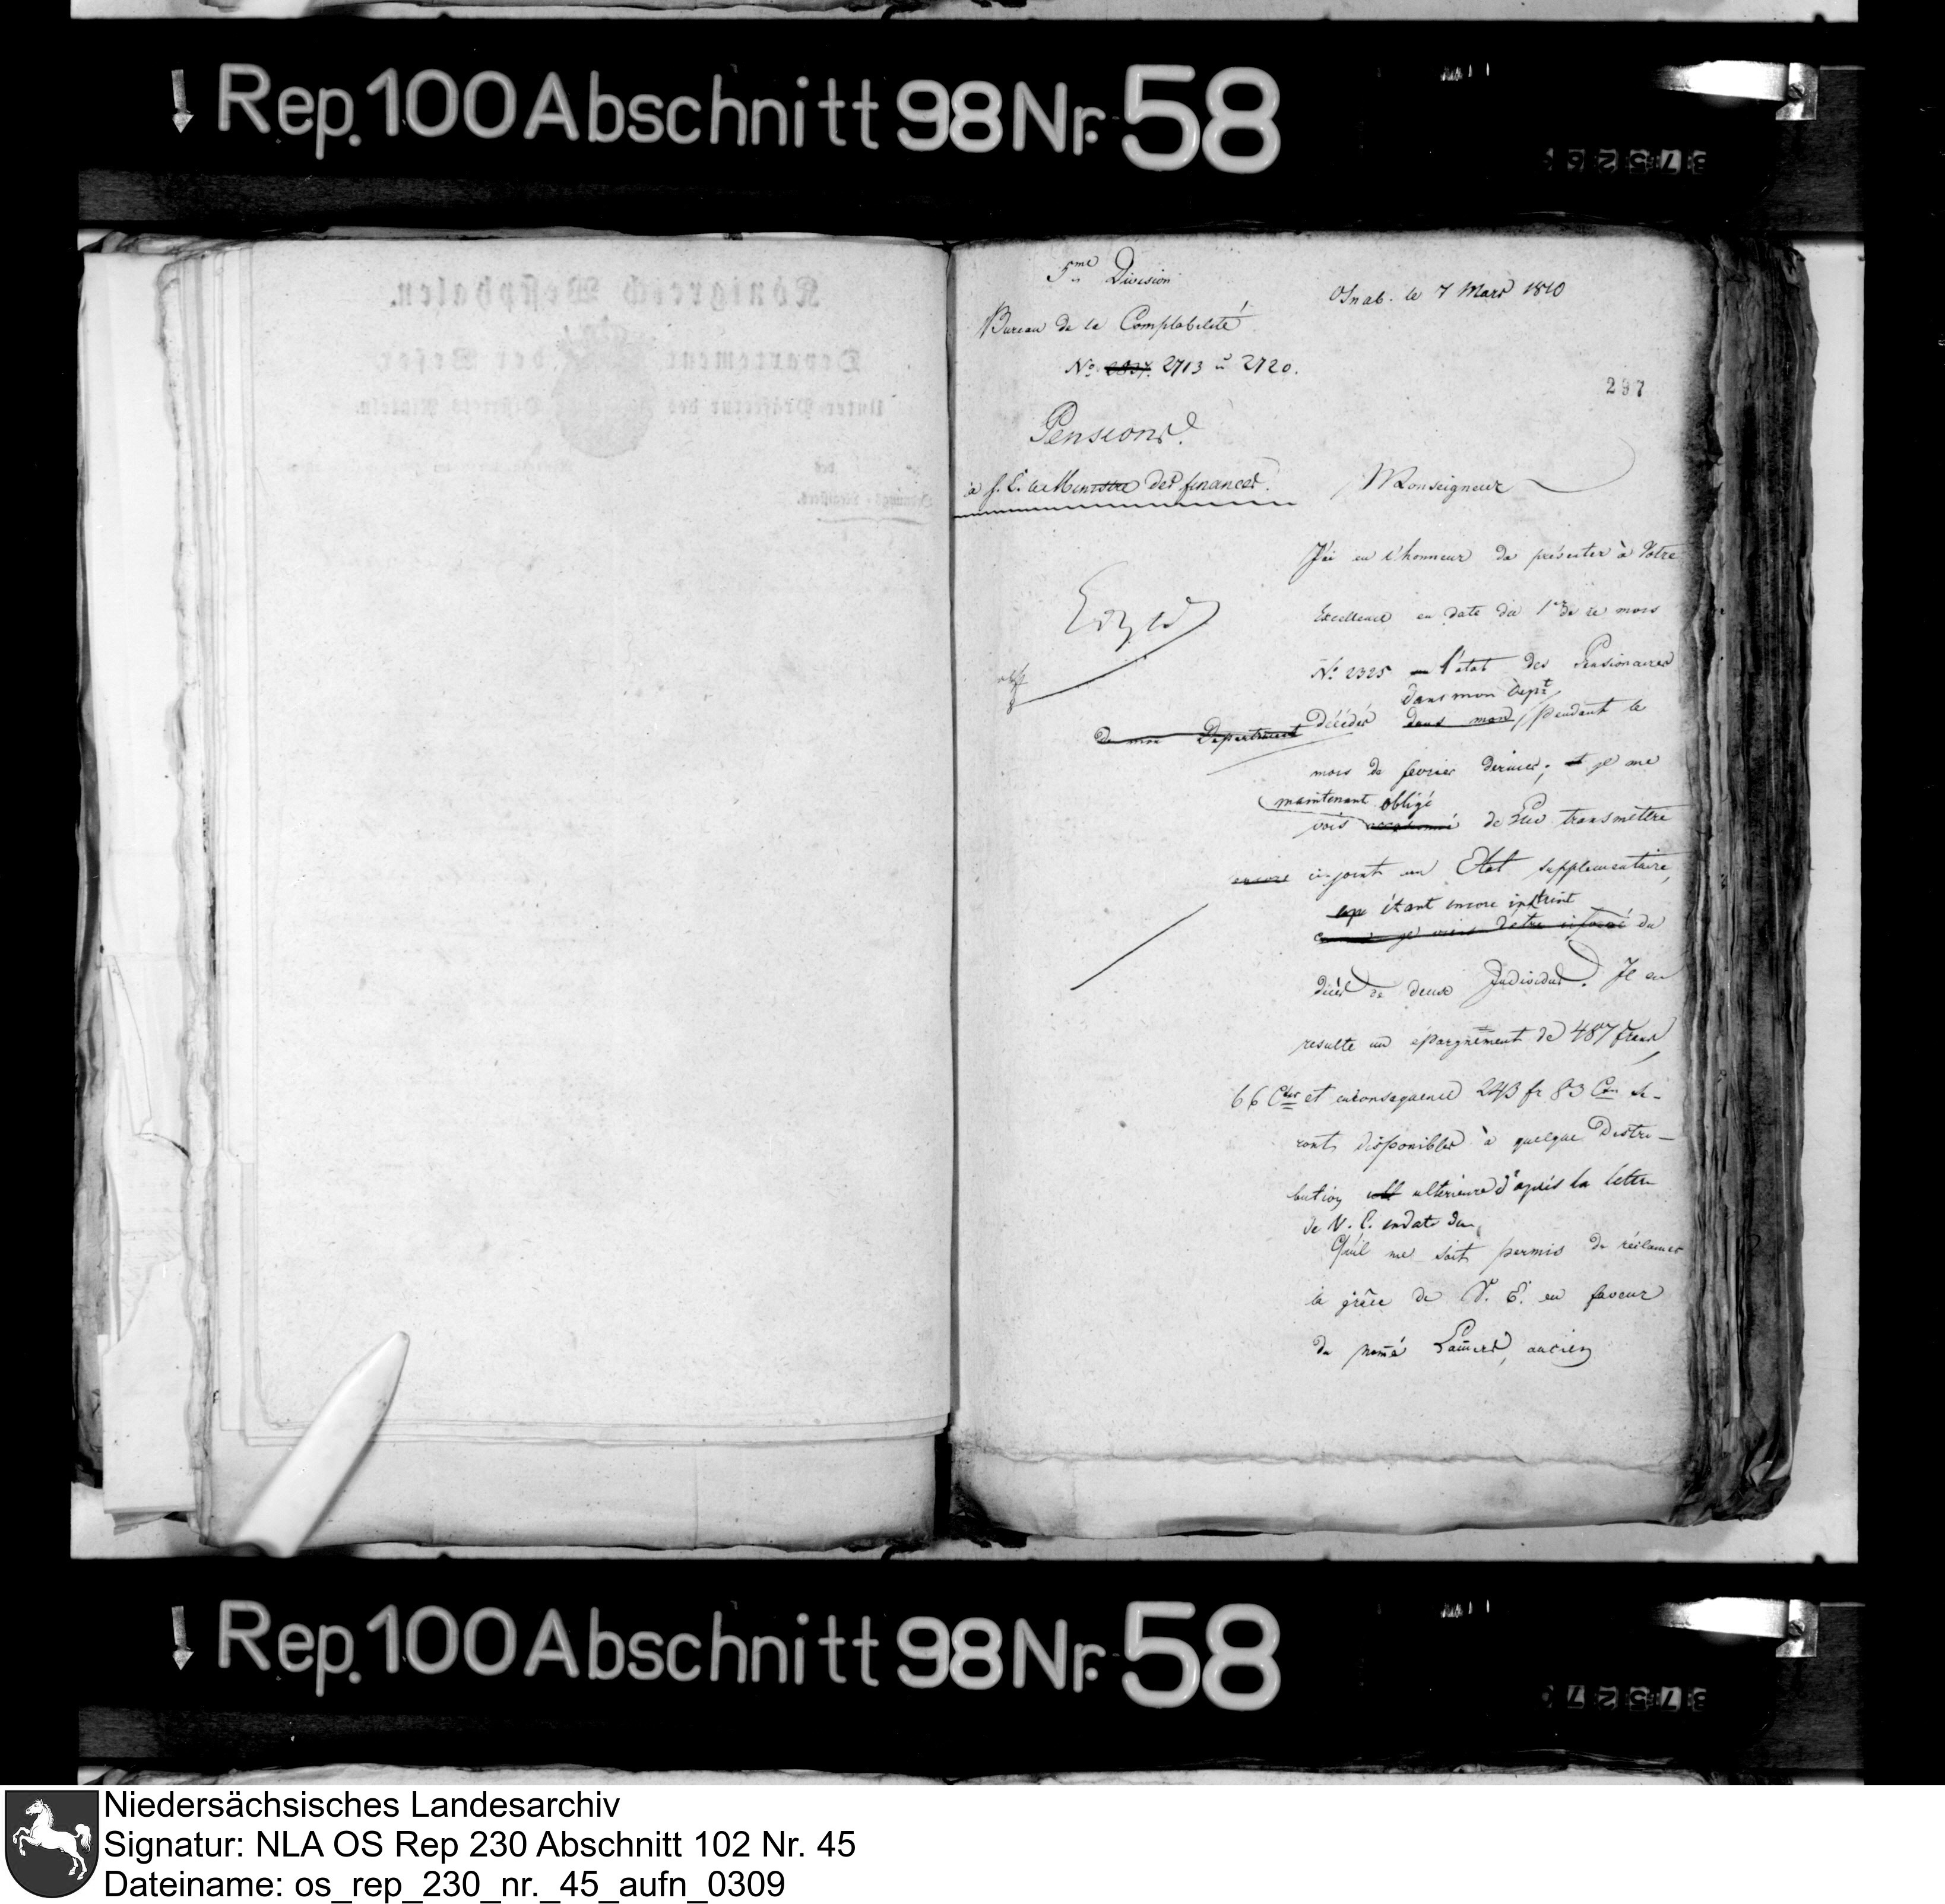 Rep. 100 Abschnitt 98 Nr. 58
5me Division
Osnab. le 7 Mars 1810
Bureau de la Comptabilité
No. 2713 à 2720.
297
Pensions.
à S. E. le Ministre des finances.
Monseigneur
J'ai eu l'honneur de présenter à Votre
Excellence en date du 1er de ce mois
No. 2325 l'état des Pensionaires
dans mon Dept
de mon Departement Décédés dans mon pendant le
mois de fevrier dernier; et je me
maintenant obligé
vois de Lui transmettre
encore ci-joint un Etat supplementaire,
étant encore instruit
comme je viens d'etre informé du
décès de deux Individus. Il en
resulte un épargnement de 487 francs
66 Ctes et enconsequence 243 fr. 83 Cen se-
ront disponibles à quelque Distri-
bution ulterieure d'après la lettre
de V. E. endate du
Qu'il me soit permis de réclamer
la grâce de V. E. en faveur
du nom̄é ancien
Rep. 100 Abschnitt 98 Nr. 58
Niedersächsisches Landesarchiv
Signatur: NLA OS Rep 230 Abschnitt 102 Nr. 45
Dateiname: os_rep_230_nr._45_aufn_0309